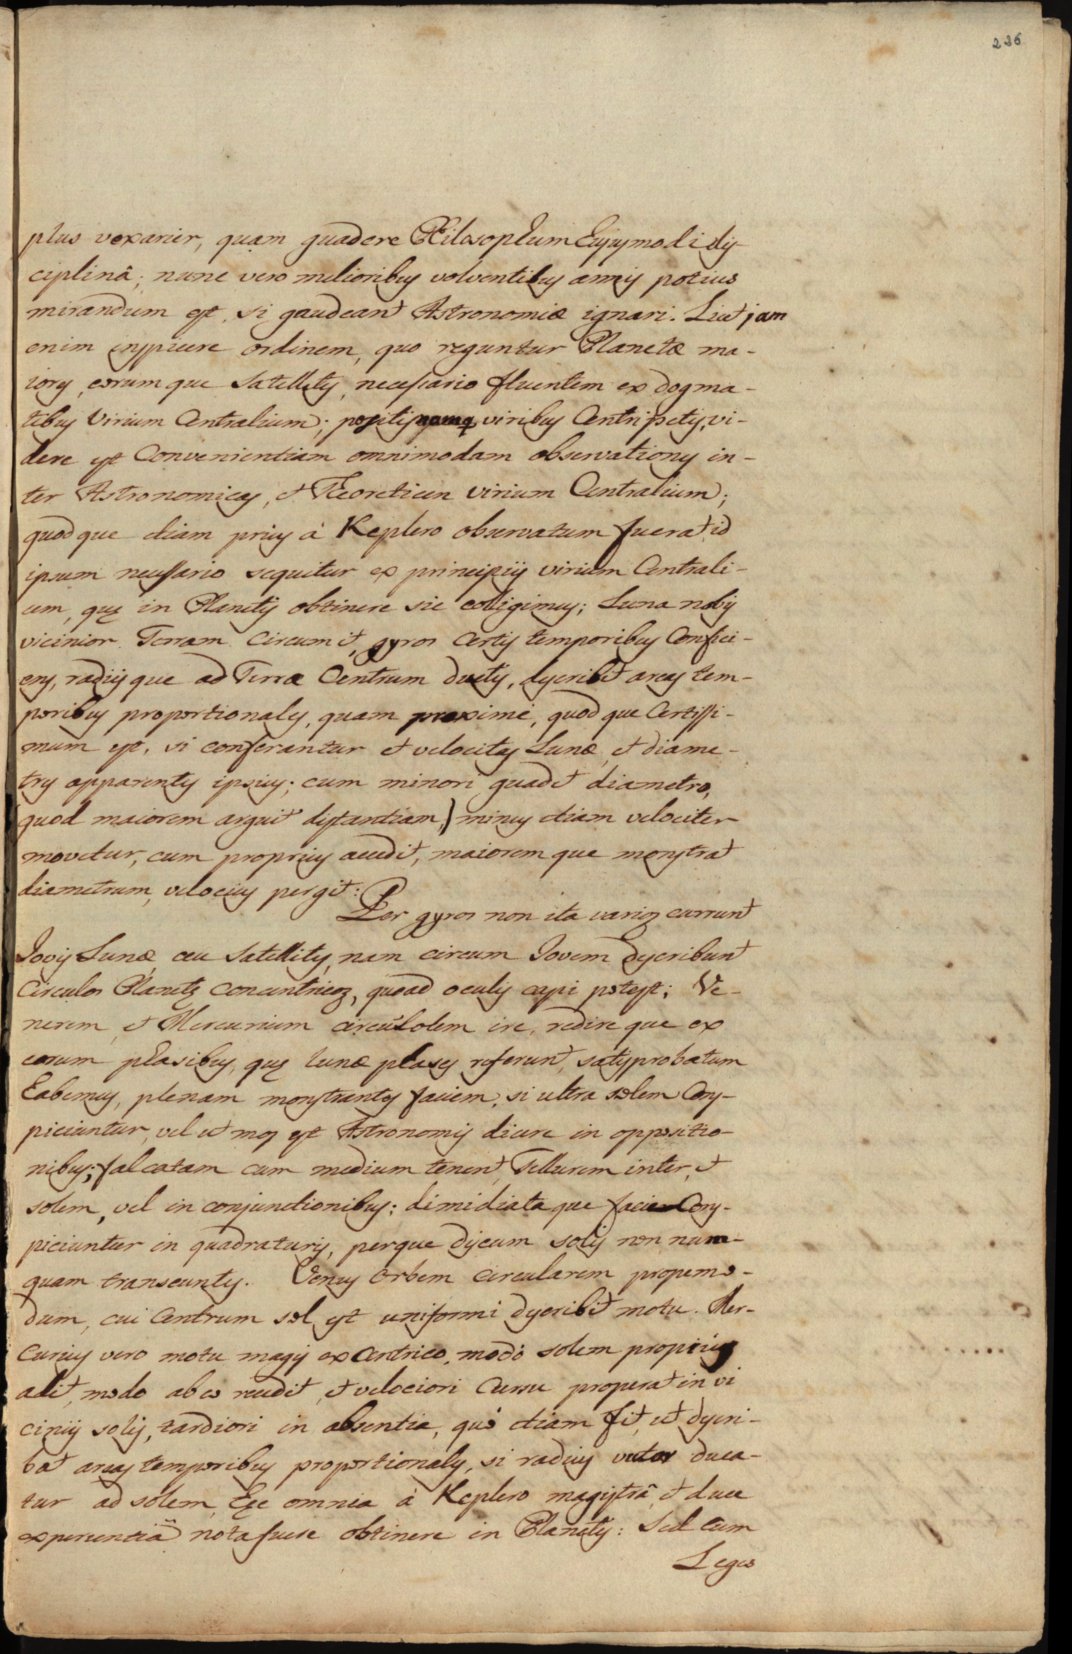 236
plus vexarier, quam guadere Philosophum hujusmodi dis-
ciplinâ; nunc vero melioribus volventibus annis potius
mirandum est, si gaudeant Astronomiæ ignari. Licet jam
enim inspicere ordinem, quo reguntur Planetæ ma-
iores, eorumque Satellites, necessario fluentem ex dogma-
tibus Virium Centralium; positis namq viribus Centripetis, vi-
dere est Convenientiam omnimodam observationes in-
ter Astronomicas, et Theoreticen virium Centralium;
quodque etiam prius à Keplero observatum fuerat, id
ipsum necessario sequitur ex principiis virium Centrali-
um, quę in Planetis obtinere sic colligimus; Luna nobis
vicinior Terram circumit, gyros certis temporibus Confici-
ens, radiisque ad Terræ Centrum ductis, describit areas tem-
poribus proportionales, quam proximè, quodque Certissi-
mum est, si conferantur et velocitas Lunæ, et diame-
tros apparentes ipsius; cum minori guadet diametro,
(quod maiorem arguit distantiam,) minus etiam velociter
movetur, cum proprius accedit, maioremque monstrat
diametrum, velocius pergit:
Per gyros non ita varios currunt
Jovis Lunæ, ceu Satellites, nam circum Jovem describunt
Circulos Planetę concentricos, quoad oculis capi potest; Ve-
nerem, et Mercurium circũ solem ire, redireque ex
eorum phasibus, quę lunæ phases referunt, satis probatum
habemus, plenam monstrantes faciem, si ultra solem Cons-
piciuntur, vel ut mos est Astronomis dicere in oppositio-
nibus; falcatam cum medium tenent, Tellurem inter, et
solem, vel in conjunctionibus; dimidiataque facie Cons-
piciuntur in quadraturis, perque discum solis non num-
quam transeuntes. Venus orbem circularem propemo-
dum, cui Centrum sol est uniformi describit motu. Mer-
curius vero motu magis excentrico, modò solem proprius
adit, modo ab eo recedit, et velociori Cursu properat in vi
ciniis solis, tardiori in absentia, quò etiam fit, ut descri-
bat areas temporibus proportionales, si radius vector duca-
tur ad solem, hęc omnia à Keplero magistrâ, et duce
experientiâ nota fuere obtinere in Planetis: Sed cum
Leges